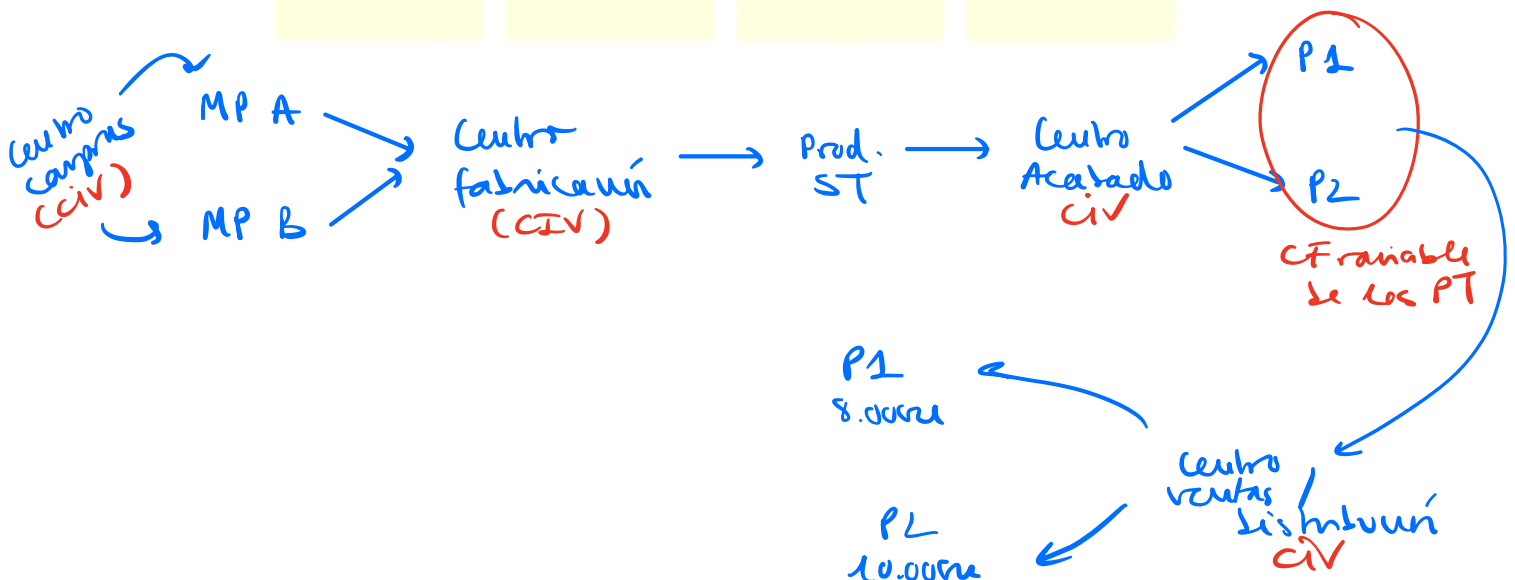 Centro
compras
(CIV)
MP A
MP B
Centro
fabricación
(CIV)
Prod.
ST
Centro
Acabado
CIV
P1
P2
CF variable
de los PT
Centro
ventas /
distribución
CIV
P1
8.000u
P2
10.000u